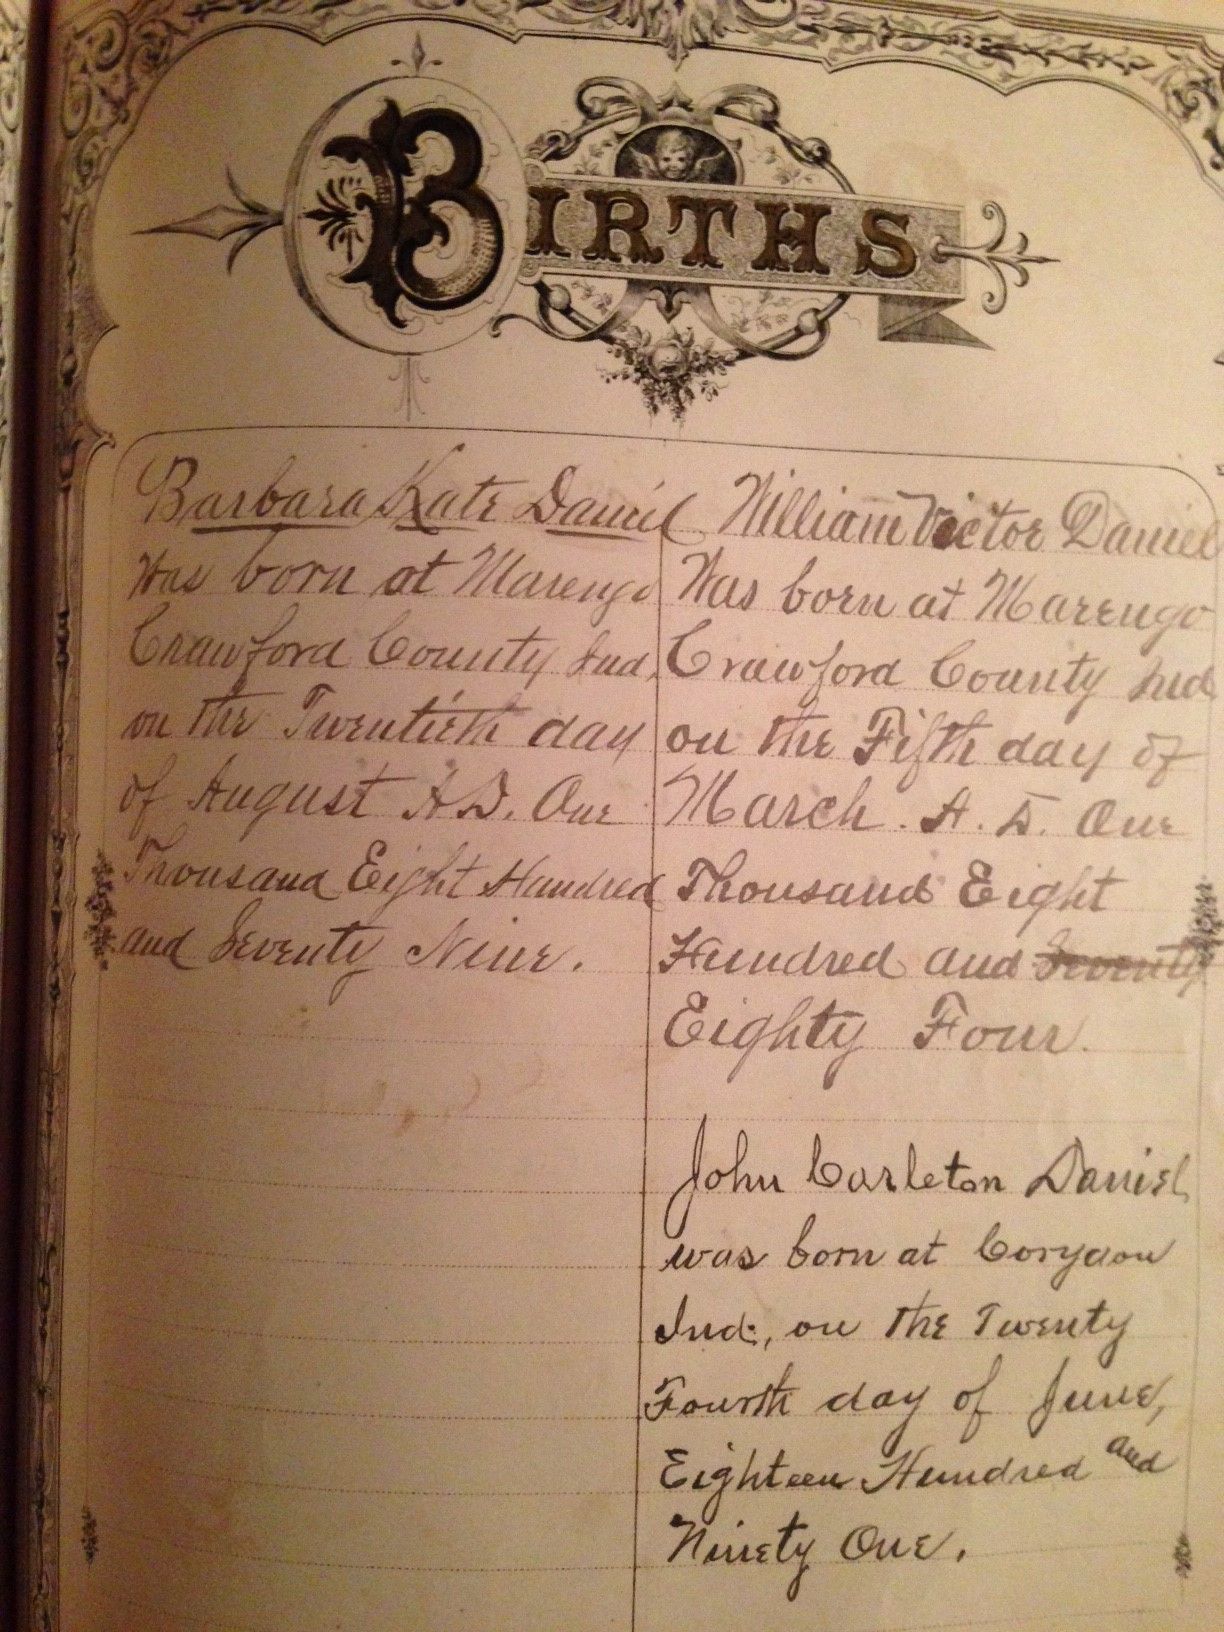 BIRTHS
Barbara Kate Daniel
Was born at Marengo
Crawford County Ind,
on the Twentieth day
of August A.D. One
Thousand Eight Hundred
and Seventy Nine.
William Victor Daniel
Was born at Marengo
Crawford County Ind
on the Fifth day of
March. A. D. One
Thousand Eight
Hundred and Seventy
Eighty Four.
John Carleton Daniel
was born at Corydon
Ind., on the Twenty
Fourth day of June,
Eighteen Hundred and
Ninety One.